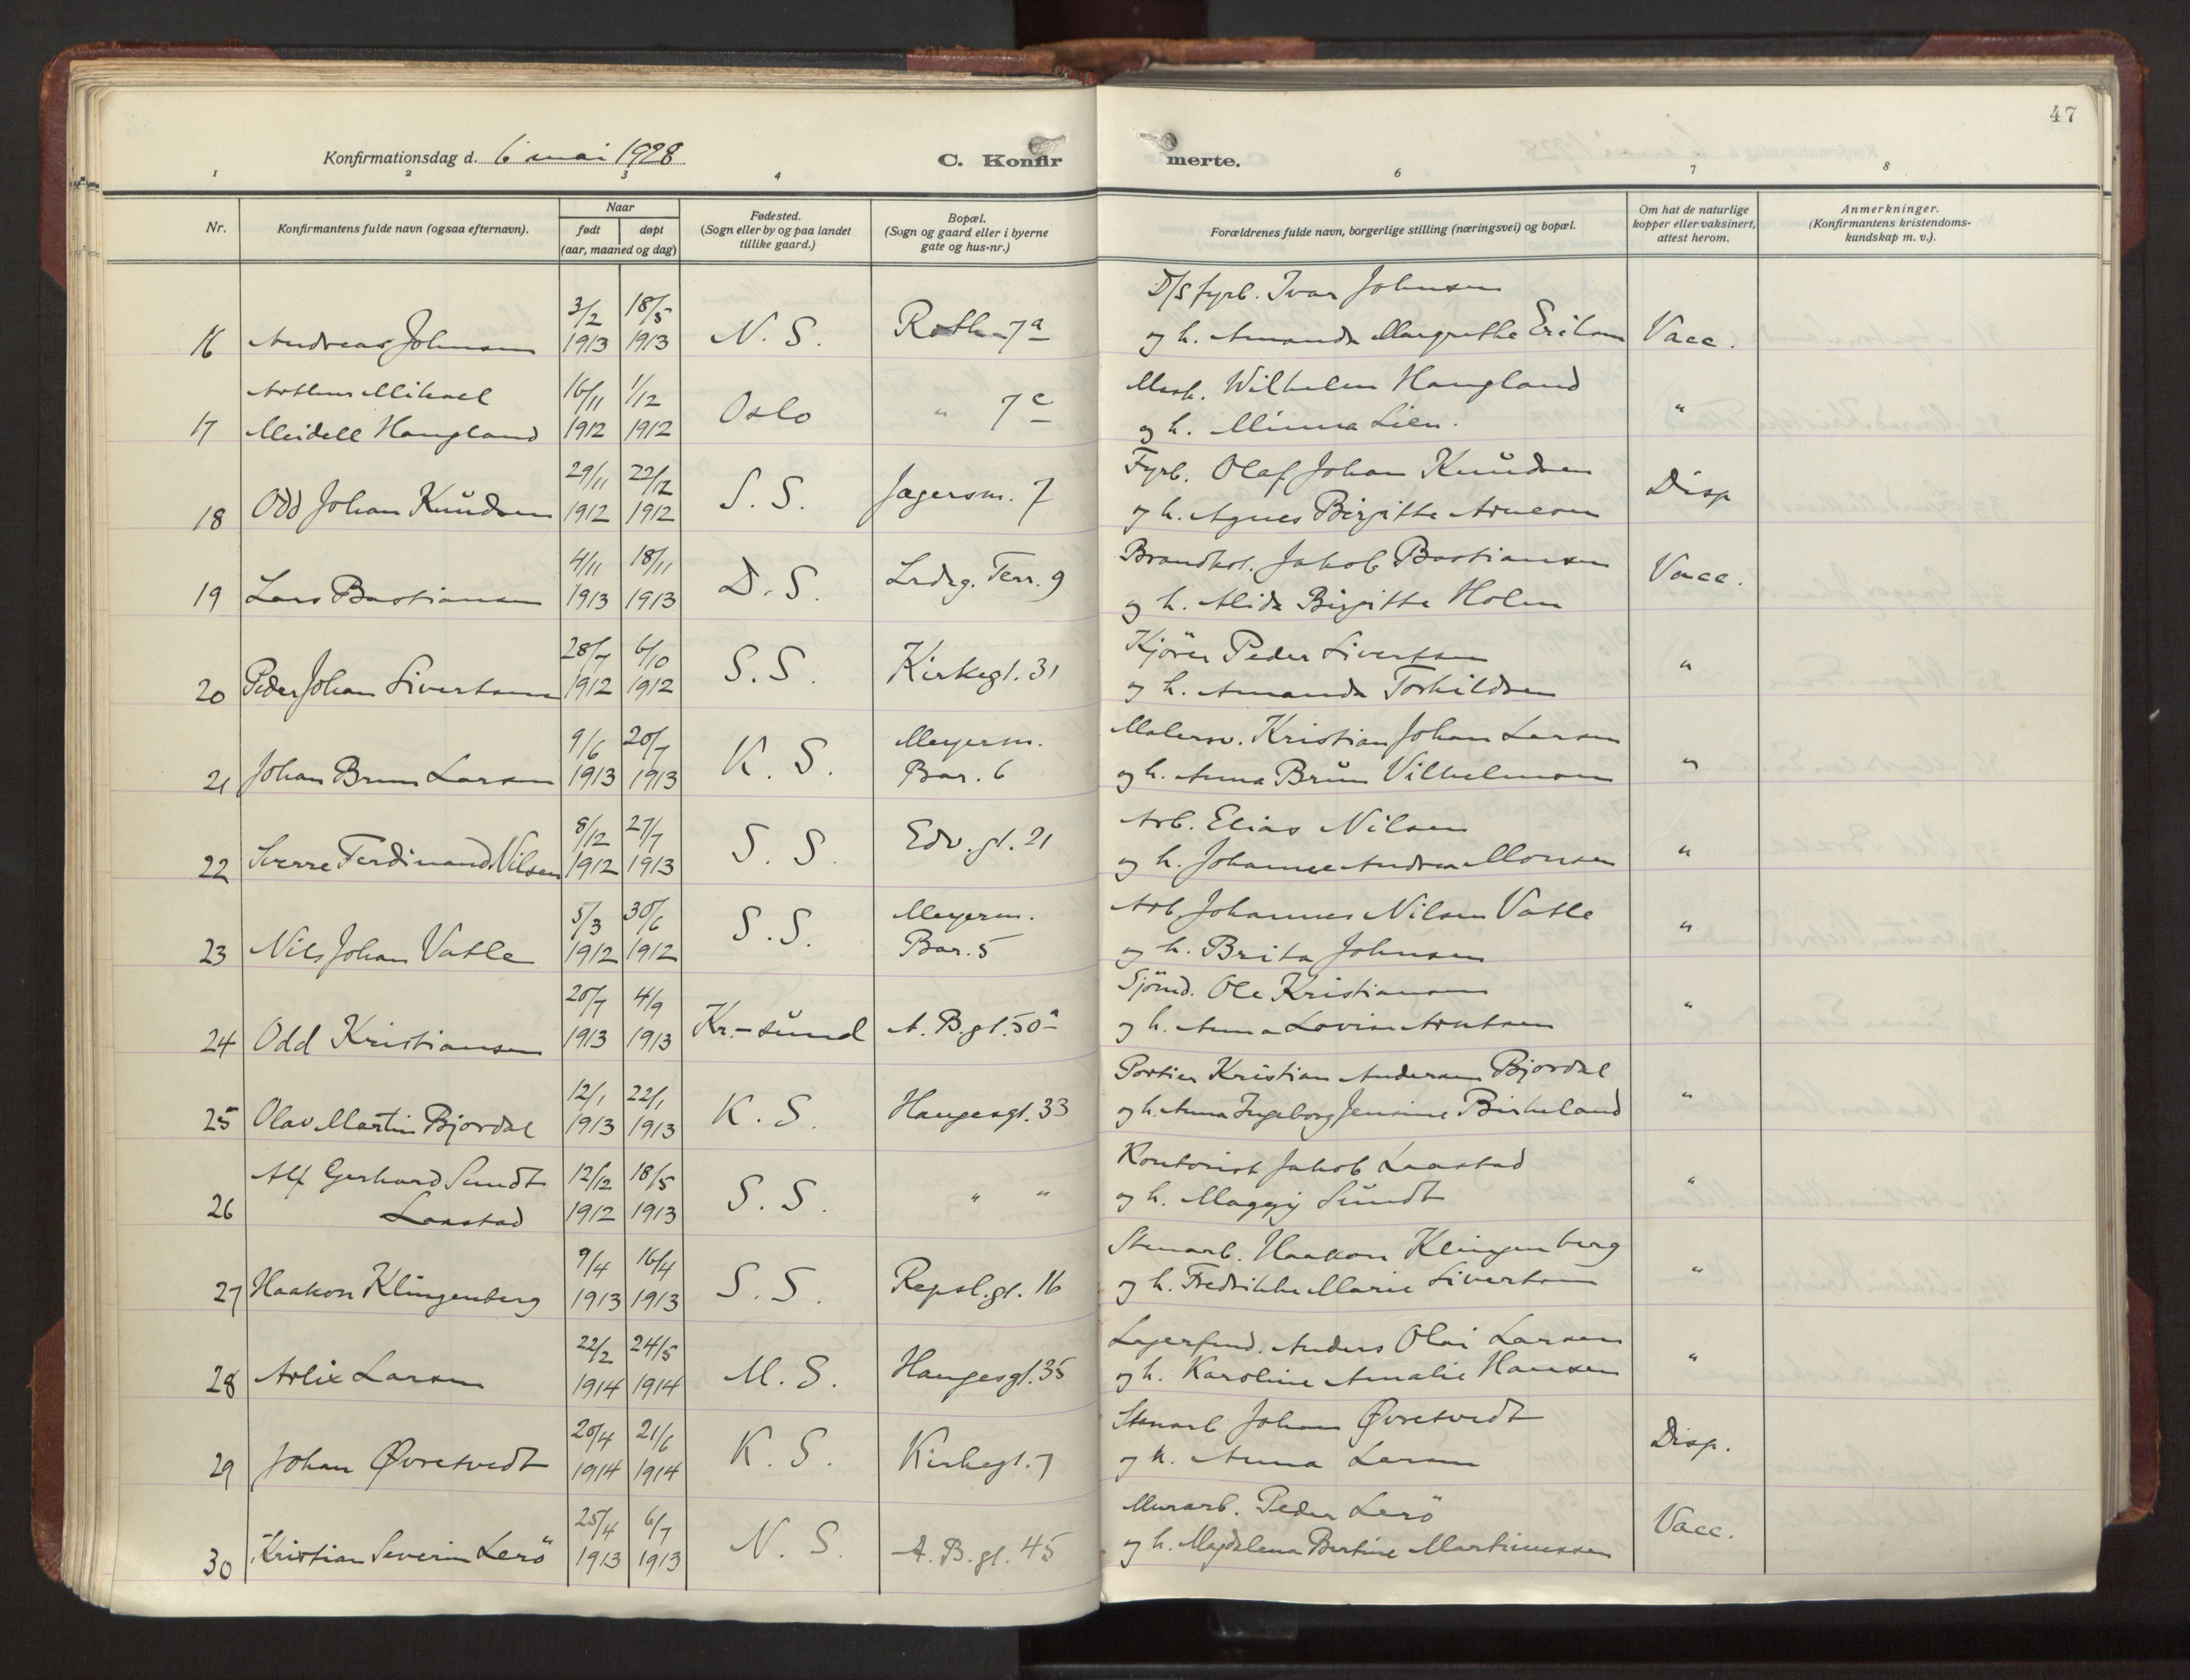 47
Konfirmationsdag d. 6 mai 1928
C. Konfirmerte.
1 2 3 4 6 7 8
Nr.
Konfirmantens fulde navn (ogsaa efternavn).
Naar
født døpt
(aar, maaned og dag)
Fødested.
(Sogn eller by og paa landet
tillike gaard.)
Bopæl.
(Sogn og gaard eller i byerne
gate og hus-nr.)
Forældrenes fulde navn, borgerlige stilling (næringsvei) og bopæl.
Om hat de naturlige
kopper eller vaksinert,
attest herom.
Anmerkninger.
(Konfirmantens kristendoms-
kundskap m. v.).
3/2 18/5 D/S fyrb. Ivar Johnsen
16 Andreas Johnsen 1913 1913 N. S. Roth. 7a og h. Amanda Margrethe Eriksen Vacc.
Arthur Mikael 16/11 1/12 Mask. Wilhelm Haugland
17 Meidell Haugland 1912 1912 Oslo " 7c og h. Minna Lien. "
29/11 22/12 Fyrb. Olaf Johan Knudsen
18 Odd Johan Knudsen 1912 1912 S. S. Jægersm. 7 og h. Agnes Birgitte Arnesen Disp
4/11 18/11 Brandkst. Jakob Bastiansen
19 Lars Bastiansen 1913 1913 D. S. Lrdrg. Terr. 9 og h. Alida Birgitte Holm Vacc.
28/7 6/10 Kjörer Peder Sivertsen
20 Peder Johan Sivertsen 1912 1912 S. S. Kirkegt. 31 og h. Amanda Torkildsen "
9/6 20/7 Meyerm. Malersv. Kristian Johan Larsen
21 Johan Brun Larsen 1913 1913 K. S. Bar. 6 og h. Anna Brun Vilhelmsen "
8/12 27/7 Arb. Elias Nilsen
22 Sverre Ferdinand Nilsen 1912 1913 S. S. Edv. gt. 21 og h. Johanne Andrea Monsen "
5/3 30/6 Meyerm. Arb. Johannes Nilsen Vatle
23 Nils Johan Vatle 1912 1912 S. S. Bar. 5 og h. Brita Johnsen "
20/7 4/9 Sjömd. Ole Kristiansen
24 Odd Kristiansen 1913 1913 Kr.-sund A. B. gt. 50a og h. Anna Lovise Arntsen "
12/1 22/1 Portier Kristian Andersen Bjordal
25 Olav Martin Bjordal 1913 1913 K. S. Haugesgt. 33 og h. Anna Ingeborg Jensine Birkeland "
Alf Gerhard Sundt 12/12 18/5 Kontorist Jakob Laastad
26 Laastad 1912 1913 S. S. " " og h. Maggy Sundt "
9/4 16/4 Stenarb. Haakon Klingenberg
27 Haakon Klingenberg 1913 1913 S. S. Repsl. gt. 16 og h. Fredrikke Marie Sivertsen "
22/2 24/5 Lagerfmd. Anders Olai Larsen
28 Arlix Larsen 1914 1914 M. S. Haugesgt. 35 og h. Karoline Amalie Hansen "
20/4 21/6 Stenarb Johan Øvretvedt
29 Johan Øvretvedt 1914 1914 K. S. Kirkegt. 7 og h. Anna Larsen Disp.
25/4 6/7 Murarb. Peder Lerö
30 Kristian Severin Lerö 1913 1913 N. S. A. B. gt. 45 og h. Magdalena Bertine Martinussen Vacc.